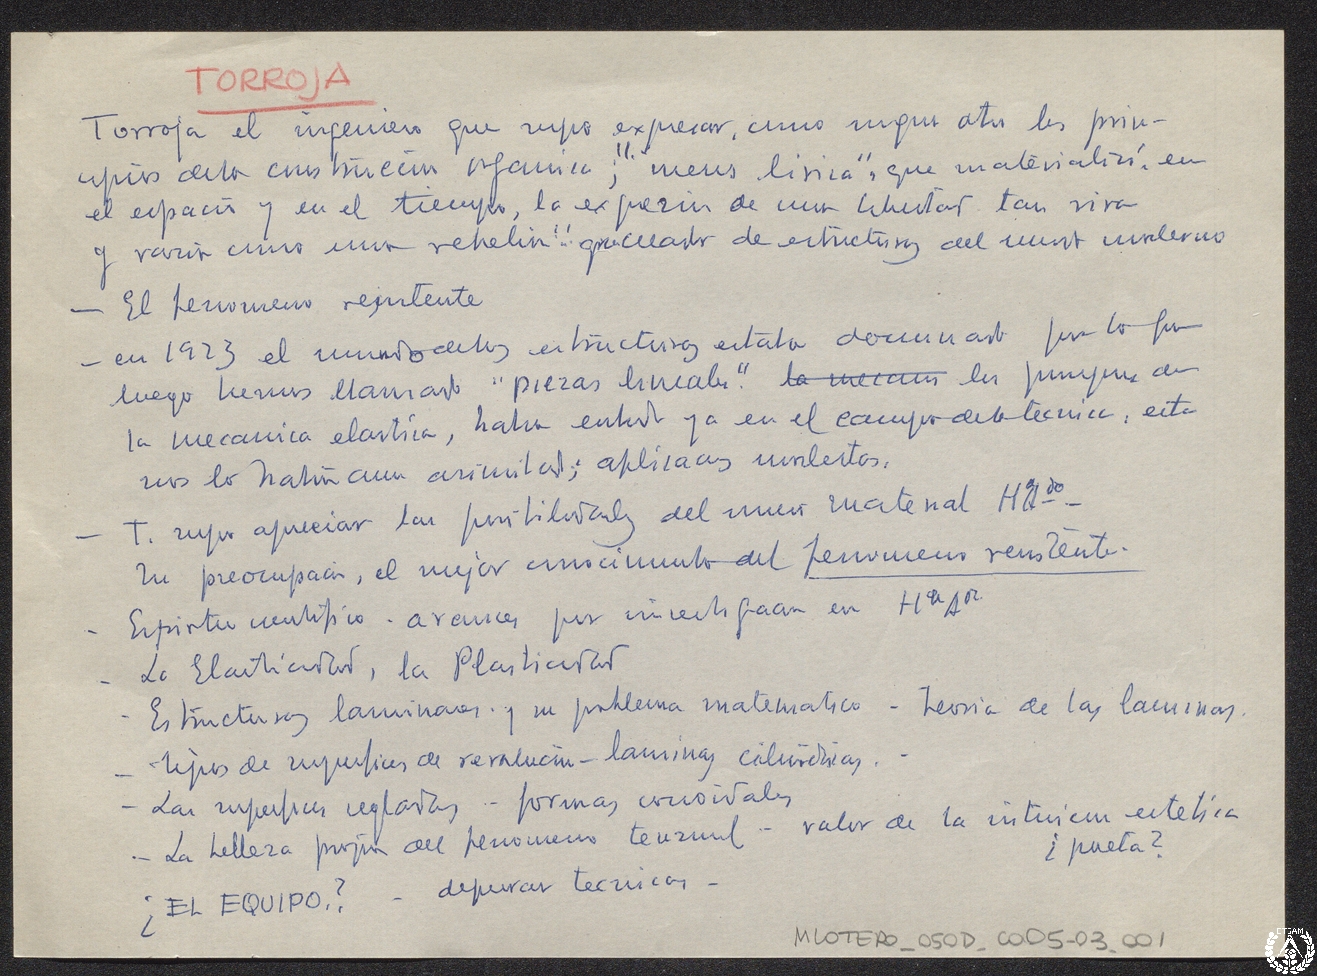 TORROJA
Torroja el ingeniero que supo expresar, como ningun otro los prin-
cipios de la construcción organica; "mens lirica", que materializó en
el espacio y en el tiempo, la expresión de una libertad tan viva
y varia como una rebelion" creador de estructuras del mundo moderno
— El fenomeno resistente
— en 1923 el mundo de las estructuras estaba dominado por lo que
luego hemos llamado "piezas lineales". la mecanica los principios de
la mecanica elastica, habia entrado ya en el campo de la tecnica, esta
no lo habia aun asimilado;
— T. supo apreciar las posibilidades del nuevo material Hº Aº -
Su preocupacion, el mejor conocimiento del fenomeno resistente.
- Espiritu cientifico - avances por investigacion en
- La Elasticidad, la Plasticidad
- Estructuras laminares y su problema matematico - Teoria de las laminas.
- tipos de superficies de revolución - laminas cilindricas. -
- Las superficies regladas - formas conoidales
- La belleza propia del fenomeno tensional - valor de la intuicion estetica
¿poeta?
¿EL EQUIPO.? - depurar tecnicas -
MLOTERO_050D_COD5-03_001
ETSAM